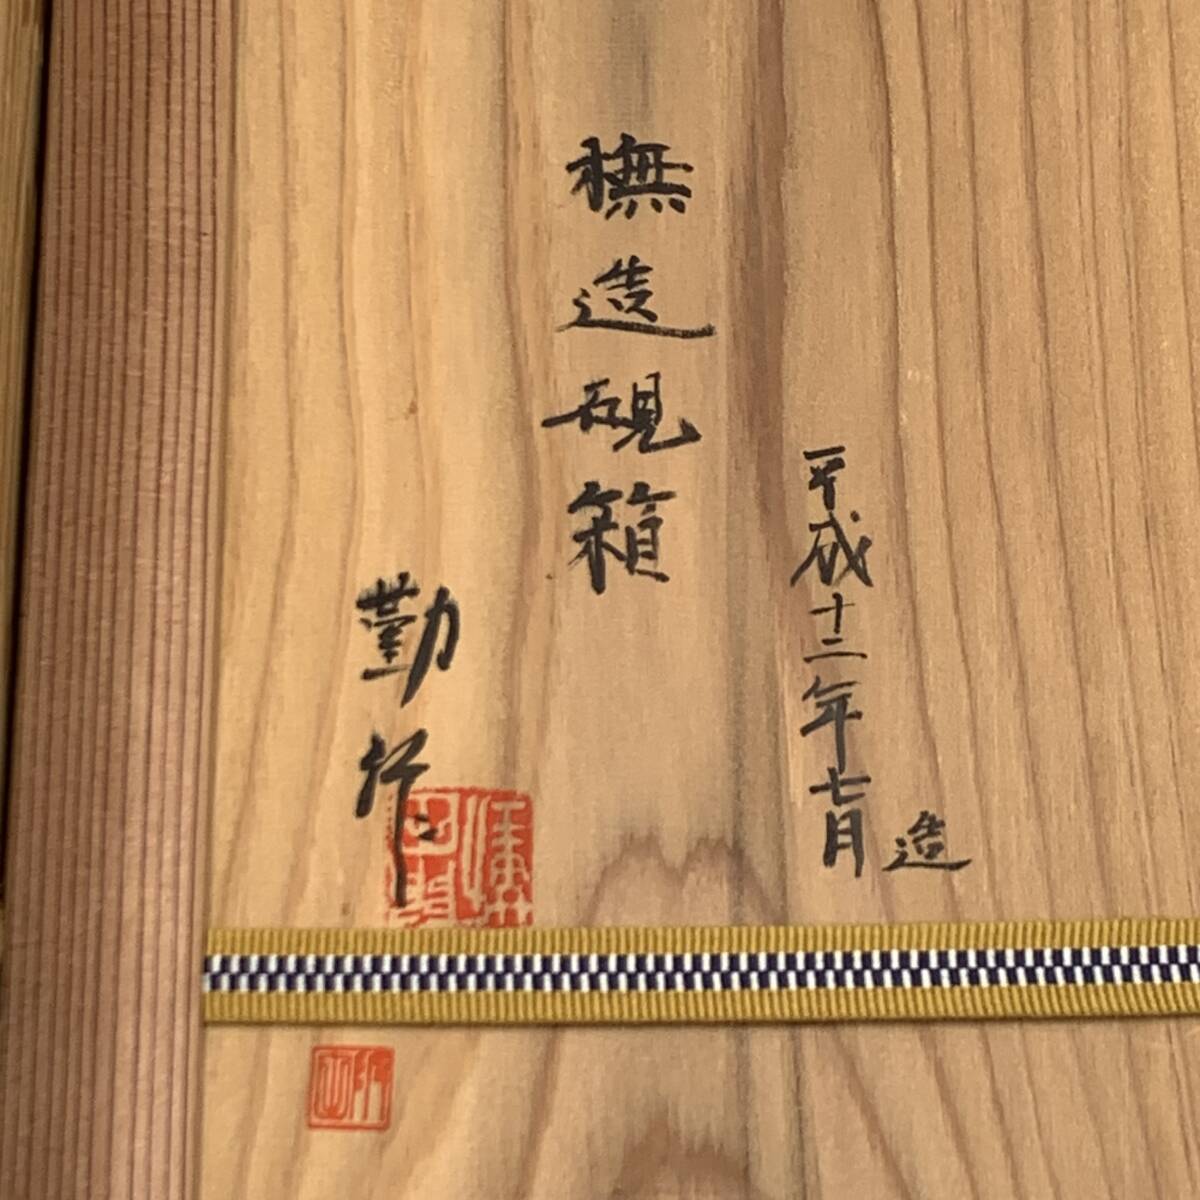 平成十二年七月
造
橅造硯箱
勤作